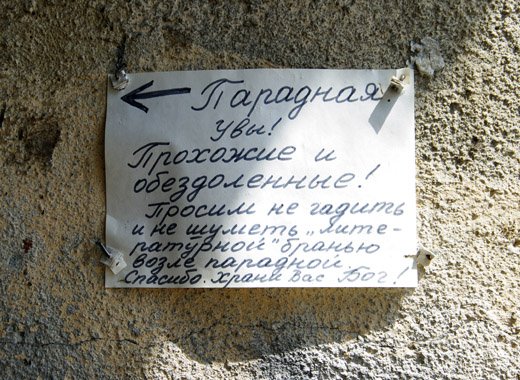 ← Парадная!
Увы!
Прохожие и
обездоленные!
Просим не гадить
и не шуметь „лите-
ратурной" бранью
возле парадной.
Спасибо. Храни Вас Бог!